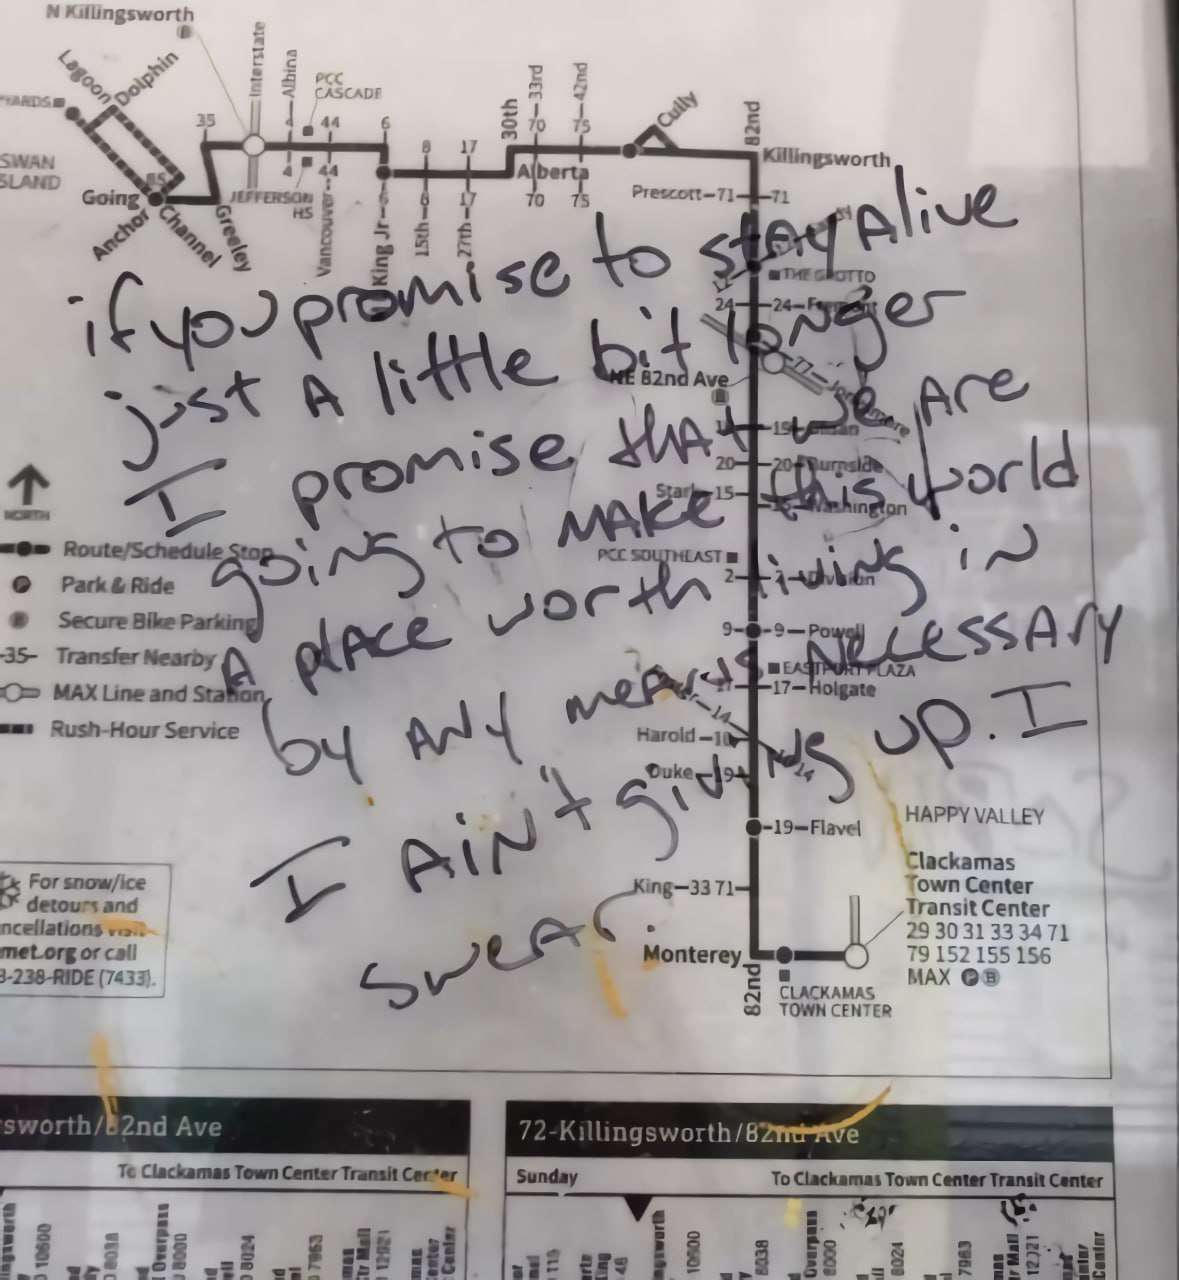 N Killingsworth
Lagoon
Dolphin
Interstate
Albina
PCC
CASCADE
YARDS
SWAN
SLAND
Going
Anchor
Channel
Greeley
35
4
44
6
4
44
JEFFERSON
HS
Vancouver
King Jr
6
8
17
8
17
15th
27th
30th
33rd
42nd
70
75
Alberta
70
75
Cully
82nd
Killingsworth
Prescott-71 71
THE GROTTO
24 24
NE 82nd Ave
77
15
20 20 Burnside
Stark 15
Washington
PCC SOUTHEAST
2 2 Division
9 9 Powell
EASTPORT PLAZA
17 17 Holgate
14
Harold 10
14
Duke 19
19 Flavel
King 33 71
Monterey
82nd
CLACKAMAS
TOWN CENTER
HAPPY VALLEY
Clackamas
Town Center
Transit Center
29 30 31 33 34 71
79 152 155 156
MAX P B
if you promise to stAy Alive
just A little bit longer
I promise thAt we Are
going to MAke this world
A plAce worth living in
by ANy meAns NecessAry
I AiN't giviNg up. I
sweAr.
NORTH
Route/Schedule Stop
P Park & Ride
B Secure Bike Parking
-35- Transfer Nearby
MAX Line and Station
Rush-Hour Service
For snow/ice
detours and
ncellations visit
met.org or call
3-238-RIDE (7433).
sworth/82nd Ave
To Clackamas Town Center Transit Center
72-Killingsworth/82nd Ave
Sunday To Clackamas Town Center Transit Center